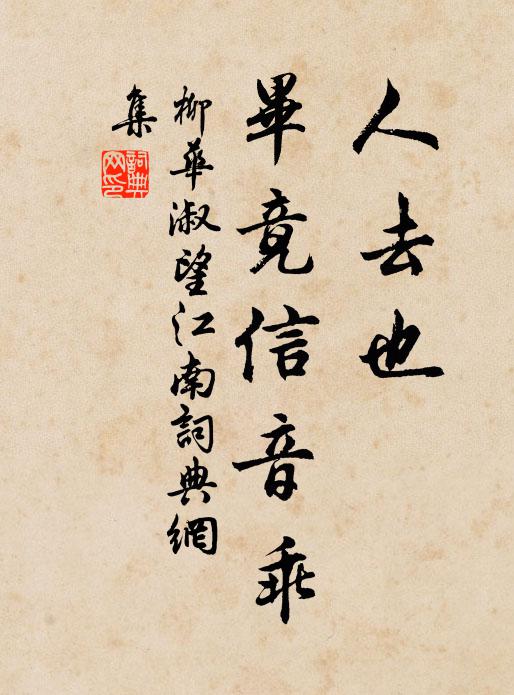 人去也
畢竟信音乖
柳華淑望江南詞典網
集
詞典網印